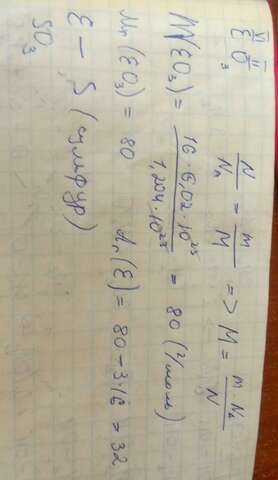 VI II
ЕO₃
N/Nₐ = m/M => M = m Nₐ/N
M(EO₃) = 16 · 6,02 · 10²³ / 1,204 · 10²³ = 80 (г/моль)
Mr(EO₃) = 80 Ar(E) = 80 - 3·16 = 32
E - S (сульфур)
SO₃